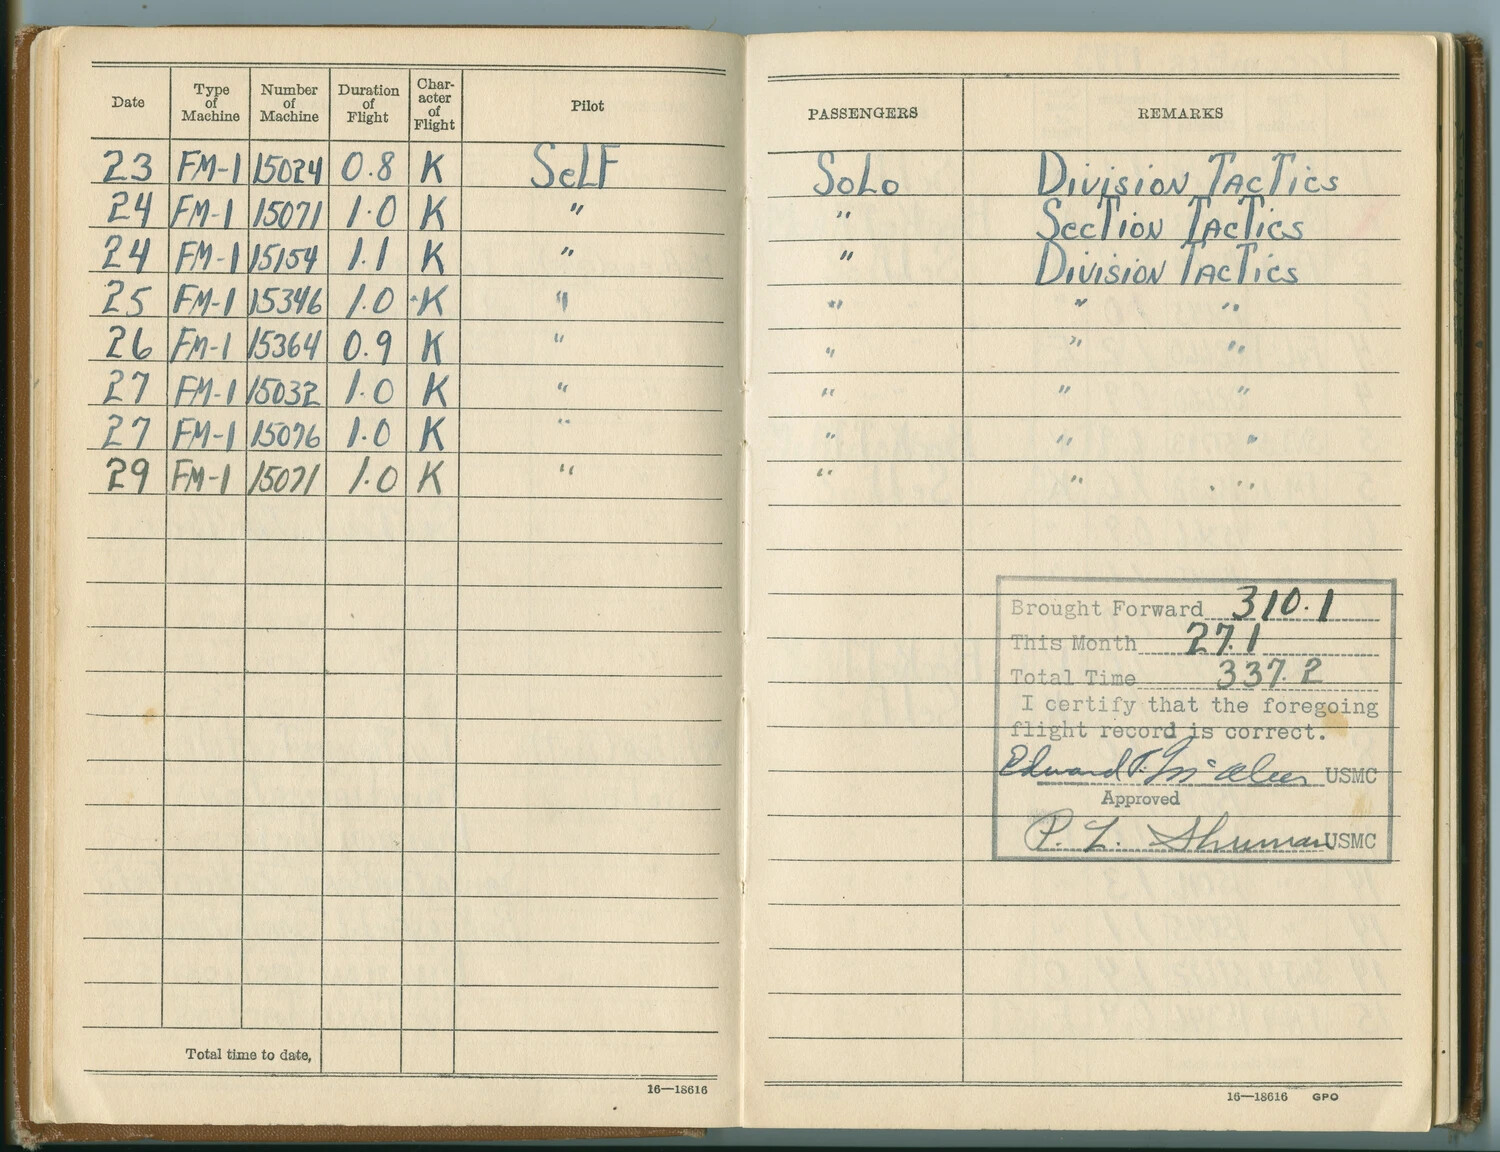 Date Type of Machine Number of Machine Duration of Flight Char-acter of Flight Pilot PASSENGERS REMARKS
23 FM-1 15024 0.8 K SeLF SoLo Division TacTics
24 FM-1 15071 1.0 K " " SecTion TacTics
24 FM-1 15154 1.1 K " " Division TacTics
25 FM-1 15346 1.0 K " " " "
26 FM-1 15364 0.9 K " " " "
27 FM-1 15032 1.0 K " " " "
27 FM-1 15076 1.0 K " " " "
29 FM-1 15071 1.0 K " " " "
Brought Forward 310.1
This Month 27.1
Total Time 337.2
I certify that the foregoing
flight record is correct.
Edward T. USMC
Approved
P. L. Shuman USMC
Total time to date,
16—18616
16—18616 GPO